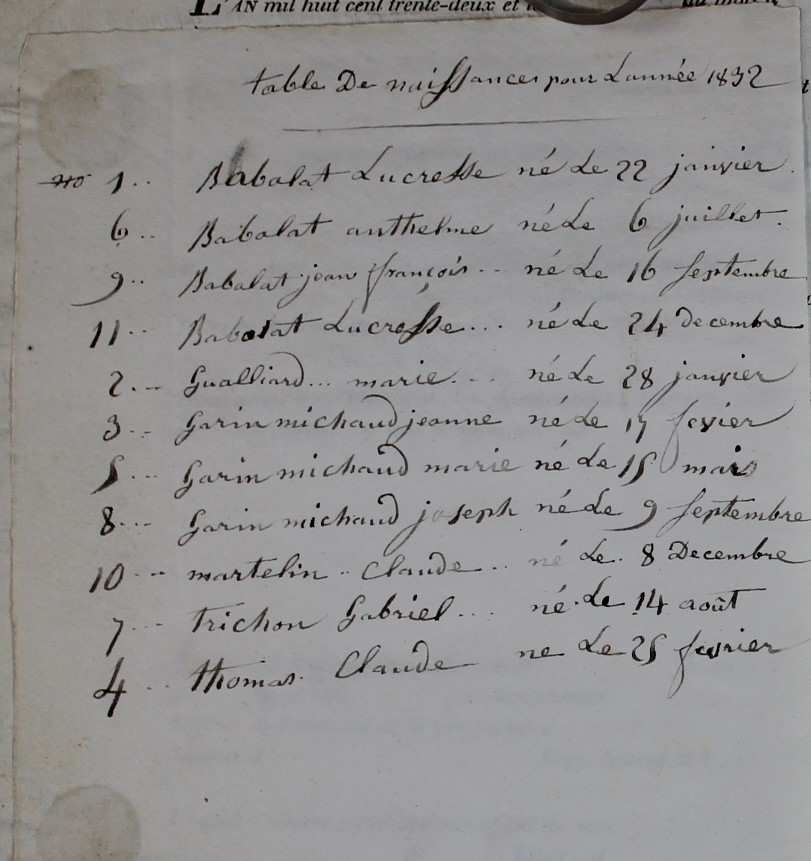 L'AN mil huit cent trente-deux et
table De naissances pour Lannée 1832
no 1.. Babolat Lucresse né Le 22 janvier.
6.. Babolat anthelme né Le 6 juillet.
9.. Babalat jean françois.. né Le 16 Septembre
11... Babolat Lucresse... né Le 24 Decembre
2... Gualliard... marie... né Le 28 janvier
3... Garin michaud jeanne né Le 17 fevier
5... Garin michaud marie né Le 15 mars
8... Garin michaud joseph né Le 9 Septembre
10... martelin.. Claude.. né Le. 8 Decembre
7... Trichon Gabriel... né. Le 14 août
4.. Thomas. Claude ne Le 25 fevrier